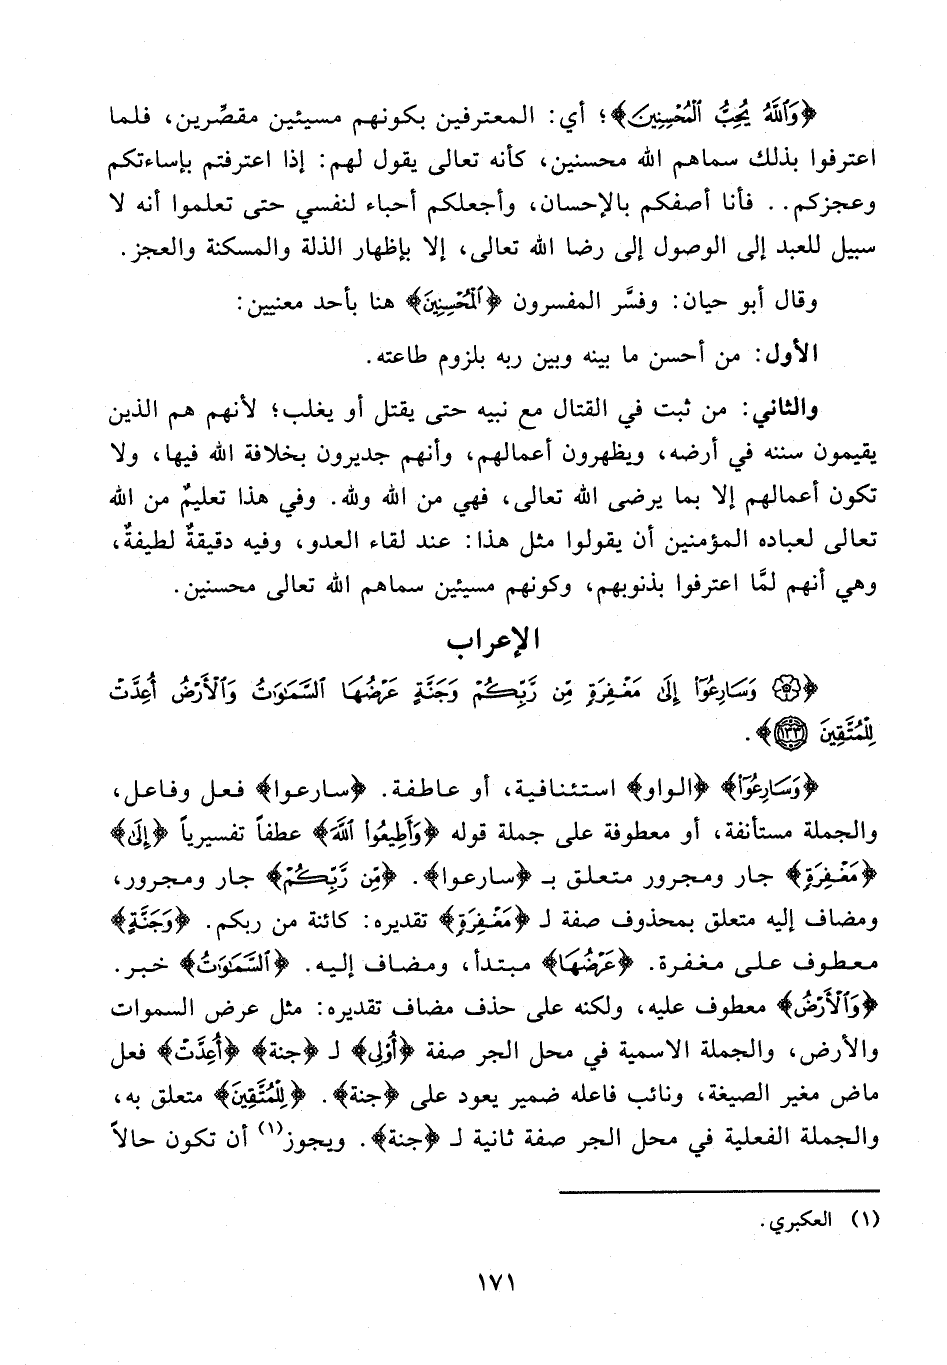 ﴿وَاللَّهُ يُحِبُّ الْمُحْسِنِينَ﴾؛ أي: المعترفين بكونهم مسيئين مقصِّرين، فلما
اعترفوا بذلك سماهم الله محسنين، كأنه تعالى يقول لهم: إذا اعترفتم بإساءتكم
وعجزكم.. فأنا أصفكم بالإحسان، وأجعلكم أحباء لنفسي حتى تعلموا أنه لا
سبيل للعبد إلى الوصول إلى رضا الله تعالى، إلا بإظهار الذلة والمسكنة والعجز.
وقال أبو حيان: وفسَّر المفسرون ﴿الْمُحْسِنِينَ﴾ هنا بأحد معنيين:
الأول: من أحسن ما بينه وبين ربه بلزوم طاعته.
والثاني: من ثبت في القتال مع نبيه حتى يقتل أو يغلب؛ لأنهم هم الذين
يقيمون سننه في أرضه، ويظهرون أعمالهم، وأنهم جديرون بخلافة الله فيها، ولا
تكون أعمالهم إلا بما يرضى الله تعالى، فهي من الله ولله. وفي هذا تعليمٌ من الله
تعالى لعباده المؤمنين أن يقولوا مثل هذا: عند لقاء العدو، وفيه دقيقةٌ لطيفةٌ،
وهي أنهم لمَّا اعترفوا بذنوبهم، وكونهم مسيئين سماهم الله تعالى محسنين.
الإعراب
﴿۞ وَسَارِعُوٓا۟ إِلَىٰ مَغْفِرَةٍ مِّن رَّبِّكُمْ وَجَنَّةٍ عَرْضُهَا السَّمَٰوَٰتُ وَالْأَرْضُ أُعِدَّتْ
لِلْمُتَّقِينَ ١٣٣﴾.
﴿وَسَارِعُوٓا۟﴾ ﴿الواو﴾ استئنافية، أو عاطفة. ﴿سارعوا﴾ فعل وفاعل،
والجملة مستأنفة، أو معطوفة على جملة قوله ﴿وَأَطِيعُوا اللَّهَ﴾ عطفاً تفسيرياً ﴿إِلَىٰ﴾
﴿مَغْفِرَةٍ﴾ جار ومجرور متعلق بـ ﴿سارعوا﴾. ﴿مِّن رَّبِّكُمْ﴾ جار ومجرور،
ومضاف إليه متعلق بمحذوف صفة لـ ﴿مَغْفِرَةٍ﴾ تقديره: كائنة من ربكم. ﴿وَجَنَّةٍ﴾
معطوف على مغفرة. ﴿عَرْضُهَا﴾ مبتدأ، ومضاف إليه. ﴿السَّمَٰوَٰتُ﴾ خبر.
﴿وَالْأَرْضُ﴾ معطوف عليه، ولكنه على حذف مضاف تقديره: مثل عرض السموات
والأرض، والجملة الاسمية في محل الجر صفة ﴿أُوْلَى﴾ لـ ﴿جنة﴾ ﴿أُعِدَّتْ﴾ فعل
ماض مغير الصيغة، ونائب فاعله ضمير يعود على ﴿جنة﴾. ﴿لِلْمُتَّقِينَ﴾ متعلق به،
والجملة الفعلية في محل الجر صفة ثانية لـ ﴿جنة﴾. ويجوز(١) أن تكون حالاً
(١) العكبري.
١٧١